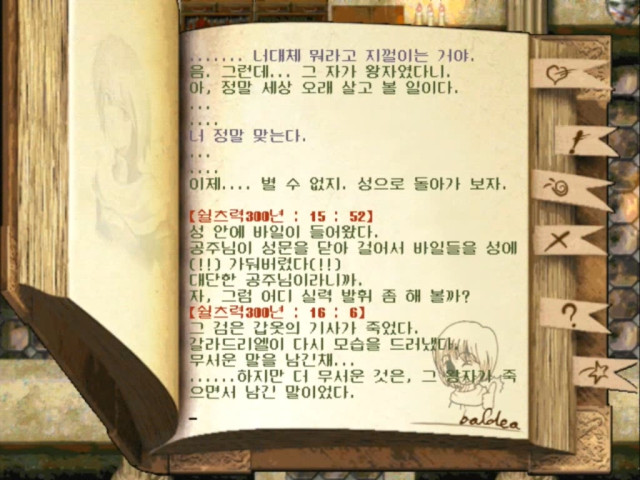 ....... 너대체 뭐라고 지껄이는 거야.
음. 그런데... 그 자가 왕자였다니.
아, 정말 세상 오래 살고 볼 일이다.
...
....
너 정말 맞는다.
...
....
이제.... 별 수 없지. 성으로 돌아가 보자.
【쉴츠력300년 : 15 : 52】
성 안에 바일이 들어왔다.
공주님이 성문을 닫아 걸어서 바일들을 성에
(!!) 가둬버렸다(!!)
대단한 공주님이라니까.
자, 그럼 어디 실력 발휘 좀 해 볼까?
【쉴츠력300년 : 16 : 6】
그 검은 갑옷의 기사가 죽었다.
갈라드리엘이 다시 모습을 드러냈다.
무서운 말을 남긴채...
......하지만 더 무서운 것은, 그 왕자가 죽
으면서 남긴 말이었다.
baldea